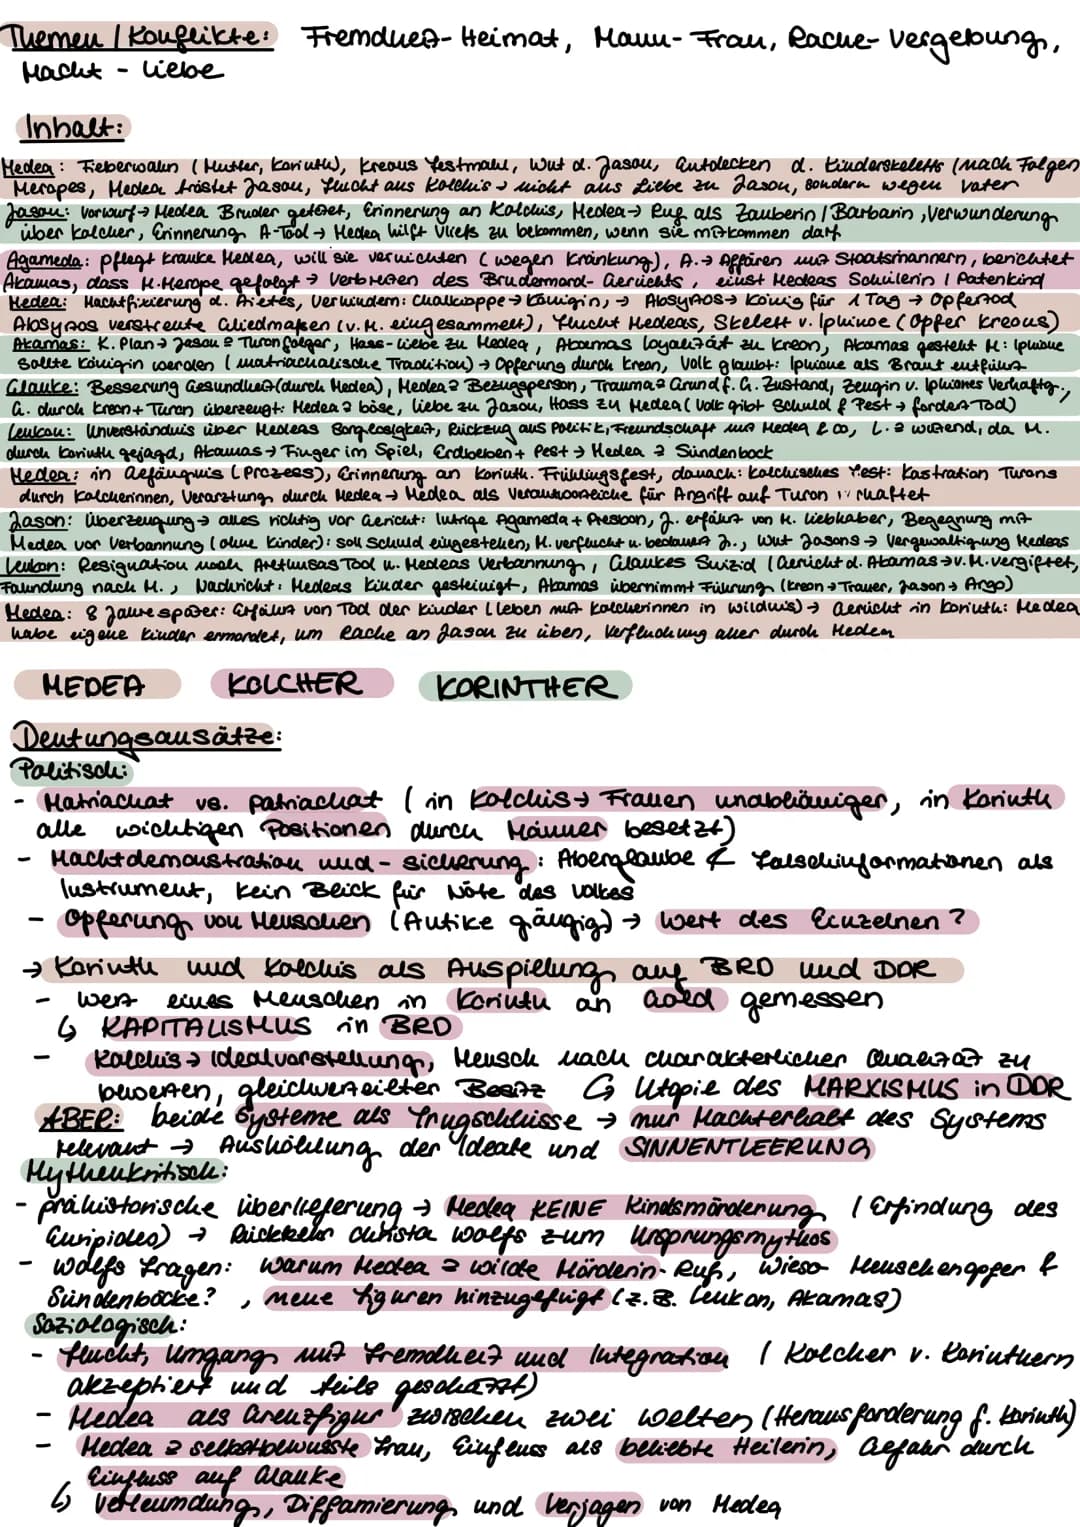 Themen / Konflikte: Fremdheit-Heimat, Mann-Frau, Rache-Vergebung,
Macht - Liebe
Inhalt:
Medea: Fieberwahn (Mutter, Korinth), Kreons Festmahl, Wut d. Jason, Entdecken d. Kinderskeletts (nach Folgen
Meropes, Medea tröstet Jason, Flucht aus Kolchis → nicht aus Liebe zu Jason, sondern wegen Vater
Jason: Vorwurf → Medea Bruder getötet, Erinnerung an Kolchis, Medea → Ruf als Zauberin / Barbarin, Verwunderung
über Kolcher, Erinnerung A-Tod → Medea hilft Vlies zu bekommen, wenn sie mitkommen darf
Agameda: pflegt kranke Medea, will sie vernichten (wegen Kränkung), A. → Affären mit Staatsmännern, berichtet
Akamas, dass M. Merope gefolgt → Verbreiten des Brudermord-Gerüchts, einst Medeas Schülerin / Patenkind
Medea: Machtfixierung d. Aietes, Verhindern: Chalkiope → Königin, → Absyrtos → König für 1 Tag → Opfertod
Absyrtos verstreute Gliedmaßen (v. M. eingesammelt), Flucht Medeas, Skelett v. Iphinoe (Opfer Kreons)
Akamas: K. Plan → Jason = Turonfolger, Hass-Liebe zu Medea, Akamas Loyalität zu Kreon, Akamas gesteht M: Iphinoe
sollte Königin werden (matriachalische Tradition) → Opferung durch Kreon, Volk glaubt: Iphinoe als Braut entführt
Glauke: Besserung Gesundheit (durch Medea), Medea = Bezugsperson, Trauma = Grund f. G. Zustand, Zeugin v. Iphinoes Verhaftg.,
G. durch Kreon + Turon überzeugt: Medea = böse, Liebe zu Jason, Hass zu Medea (Volk gibt Schuld f Pest → fordert Tod)
Leukon: Unverständnis über Medeas Sorglosigkeit, Rückzug aus Politik, Freundschaft mit Medea & co, L. = wütend, da M.
durch Korinth gejagd, Akamas → Finger im Spiel, Erdbeben + Pest → Medea = Sündenbock
Medea: in Gefängnis (Prozess), Erinnerung an Korinth. Frühlingsfest, danach: kolchisches Fest: Kastration Turons
durch Kolcherinnen, Verarztung durch Medea → Medea als Verantwortliche für Angriff auf Turon verhaftet
Jason: Überzeugung → alles richtig vor Gericht: Intrige Agameda + Presbon, J. erfährt von M. Liebhaber, Begegnung mit
Medea vor Verbannung (ohne Kinder): soll Schuld eingestehen, M. verflucht u. bedauert J., Wut Jasons → Vergewaltigung Medeas
Leukon: Resignation nach Arethusas Tod u. Medeas Verbannung, Glaukes Suizid (Gerücht d. Akamas → v. M. vergiftet,
Fahndung nach M., Nachricht: Medeas Kinder gesteinigt, Akamas übernimmt Führung (Kreon → Trauer, Jason → Argo)
Medea: 8 Jahre später: Erfährt von Tod der Kinder (leben mit Kolcherinnen in Wildnis) → Gerücht in Korinth: Medea
habe eigene Kinder ermordet, um Rache an Jason zu üben, Verfluchung aller durch Medea
MEDEA KOLCHER KORINTHER
Deutungsansätze:
Politisch:
- Matriachat vs. Patriachat (in Kolchis → Frauen unabhäniger, in Korinth
alle wichtigen Positionen durch Männer besetzt)
- Machtdemonstration und -sicherung: Aberglaube & Falschinformationen als
Instrument, kein Blick für Nöte des Volkes
- Opferung von Menschen (Antike gängig) → Wert des Einzelnen?
→ Korinth und Kolchis als Anspielung auf BRD und DDR
- Wert eines Menschen in Korinth an Gold gemessen
↳ KAPITALISMUS in BRD
- Kolchis → Idealvorstellung, Mensch nach charakterlicher Qualität zu
bewerten, gleichverteilter Besitz ↳ Utopie des MARXISMUS in DDR
ABER: beide Systeme als Trugschlüsse → nur Machterhalt des Systems
relevant → Aushöhlung der Ideale und SINNENTLEERUNG
Mythenkritisch:
- prähistorische Überlieferung → Medea KEINE Kindsmörderung (Erfindung des
Euripides) → Rückkehr Christa Wolfs zum Ursprungsmythos
- Wolfs Fragen: Warum Medea = wilde Mörderin-Ruf, Wieso Menschenopfer &
Sündenböcke?, neue Figuren hinzugefügt (z.B. Leukon, Akamas)
Soziologisch:
- Flucht, Umgang mit Fremdheit und Integration (Kolcher v. Korinthern
akzeptiert und teils geschätzt)
- Medea als Grenzfigur zwischen zwei Welten (Herausforderung f. Korinth)
- Medea = selbstbewusste Frau, Einfluss als beliebte Heilerin, Gefahr durch
Einfluss auf Glauke
↳ Verleumdung, Diffamierung und Verjagen von Medea